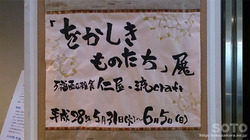 「をかしき
ものたち」展
仁屋・琥craft
平成28年5月31日(火)〜6月5日(日)
SOTO